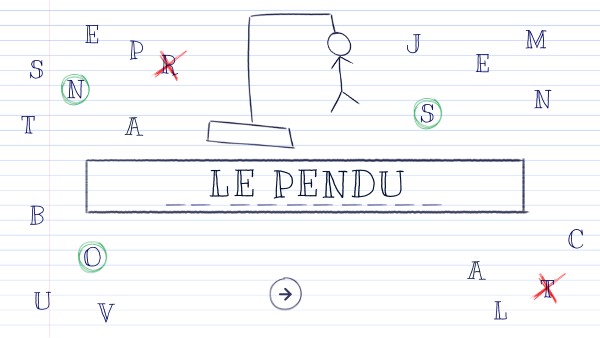 E
P
R
J
M
E
S
N
N
S
T
A
LE PENDU
B
O
C
A
U
V
T
L